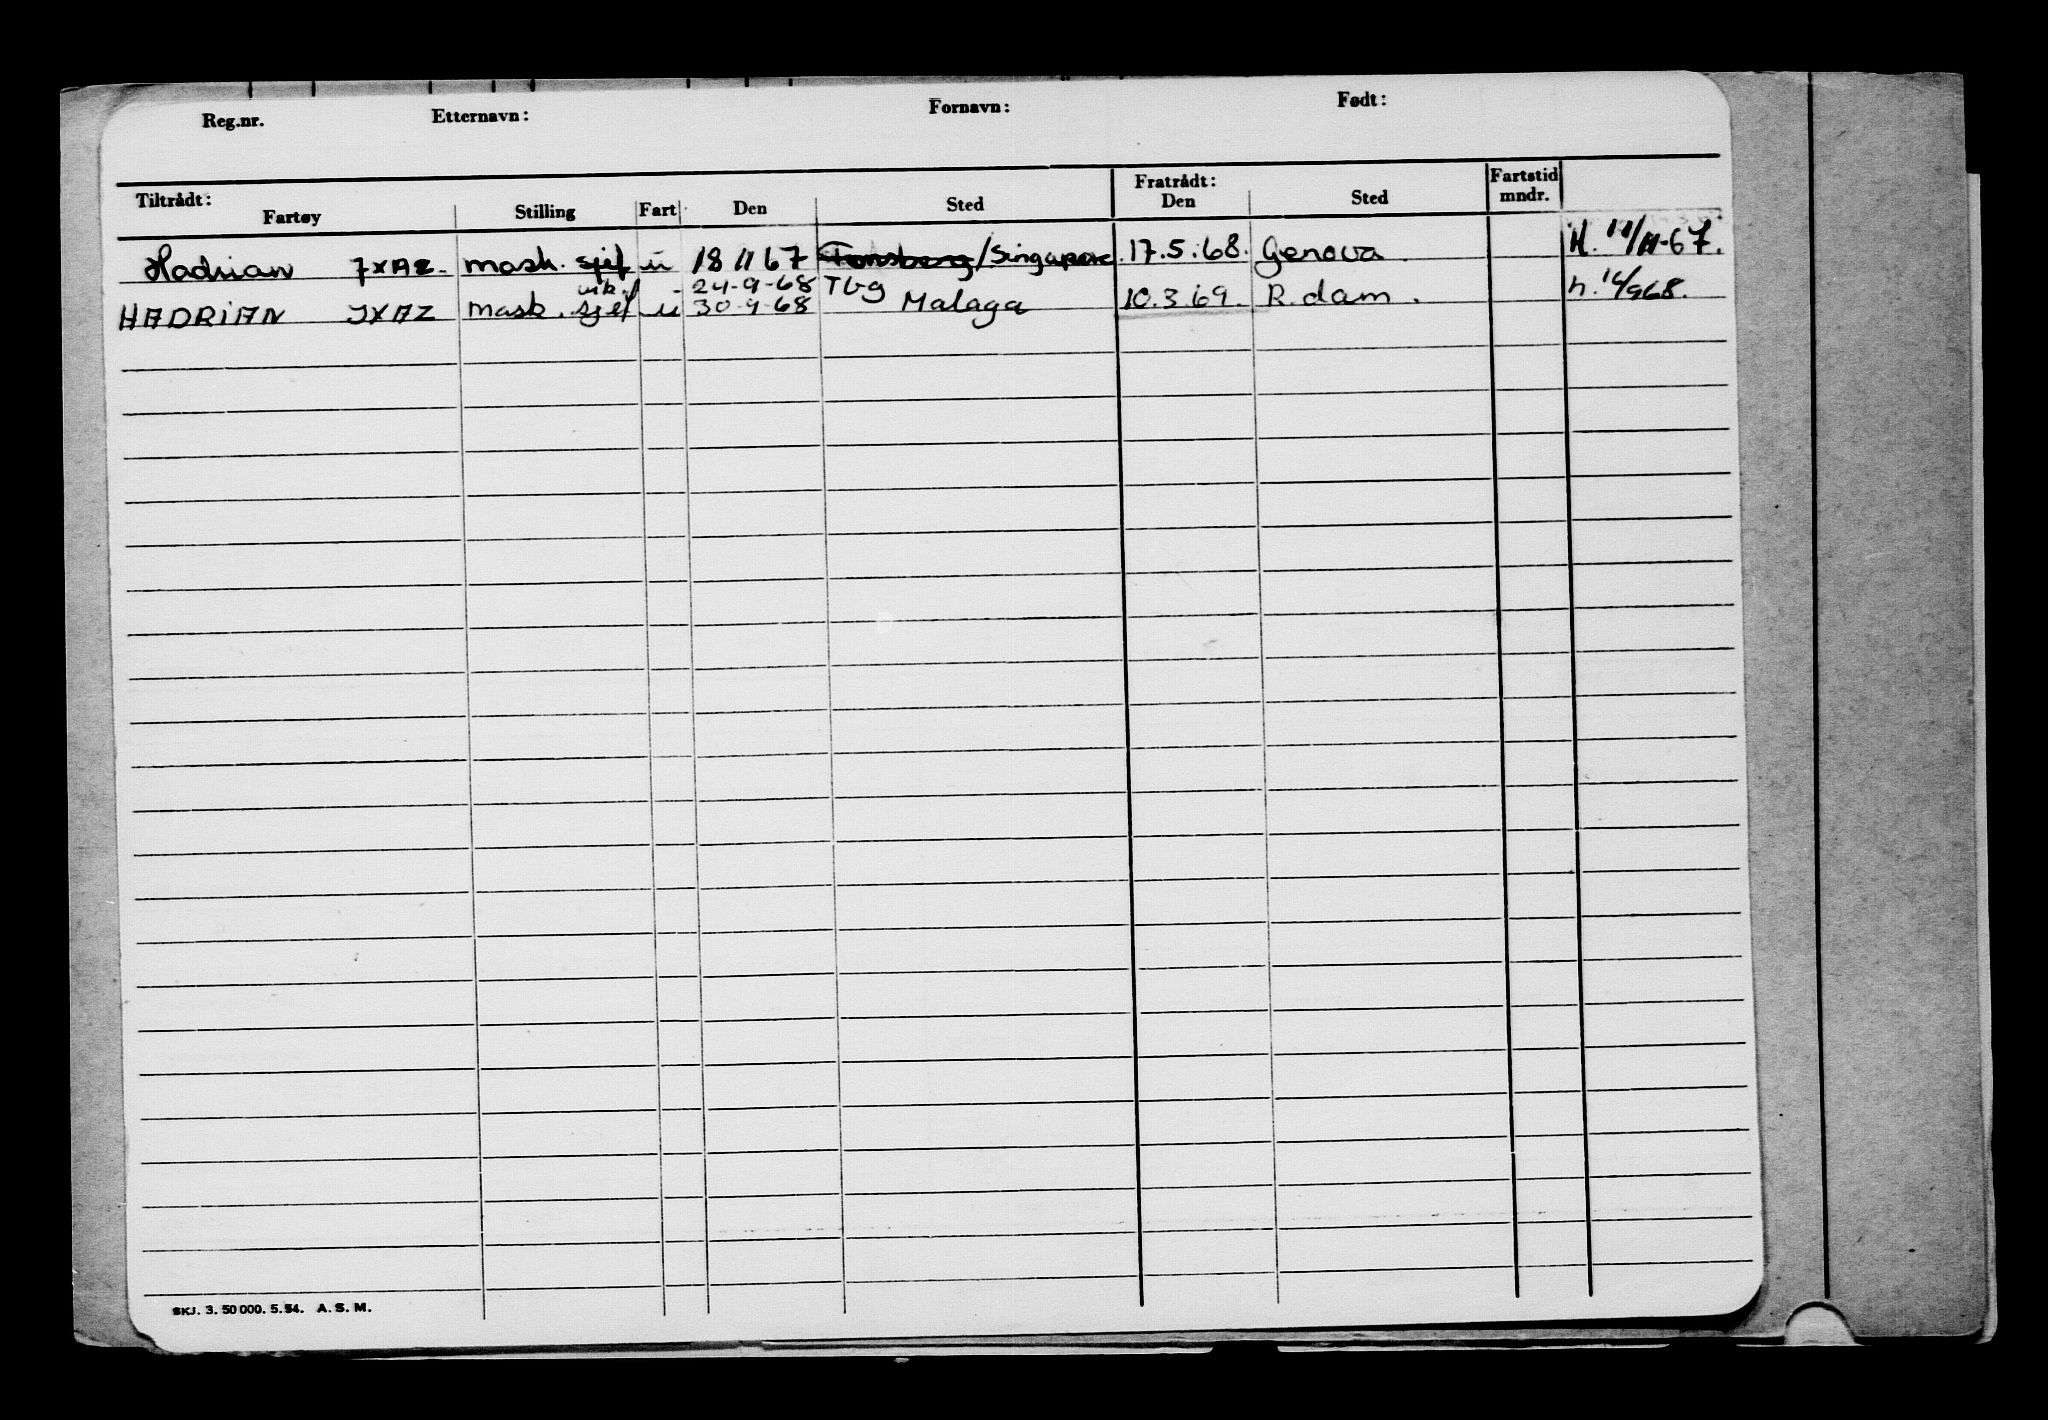 Reg.nr. Etternavn: Fornavn: Født:
Tiltrådt: Fratrådt: Fartstid
Fartøy Stilling Fart Den Sted Den Sted mndr.
Hadrian JXAZ mask. sjef u 18 11 67 Tønsberg/Singapore 17.5.68. Genova H. 11/11-67.
vik. 24-9-68 Tbg
HADRIAN JXAZ mask. sjef u 30-9-68 Malaga 10.3.69. R.dam.
SKJ. 3. 50 000. 5. 54. A. S. M.